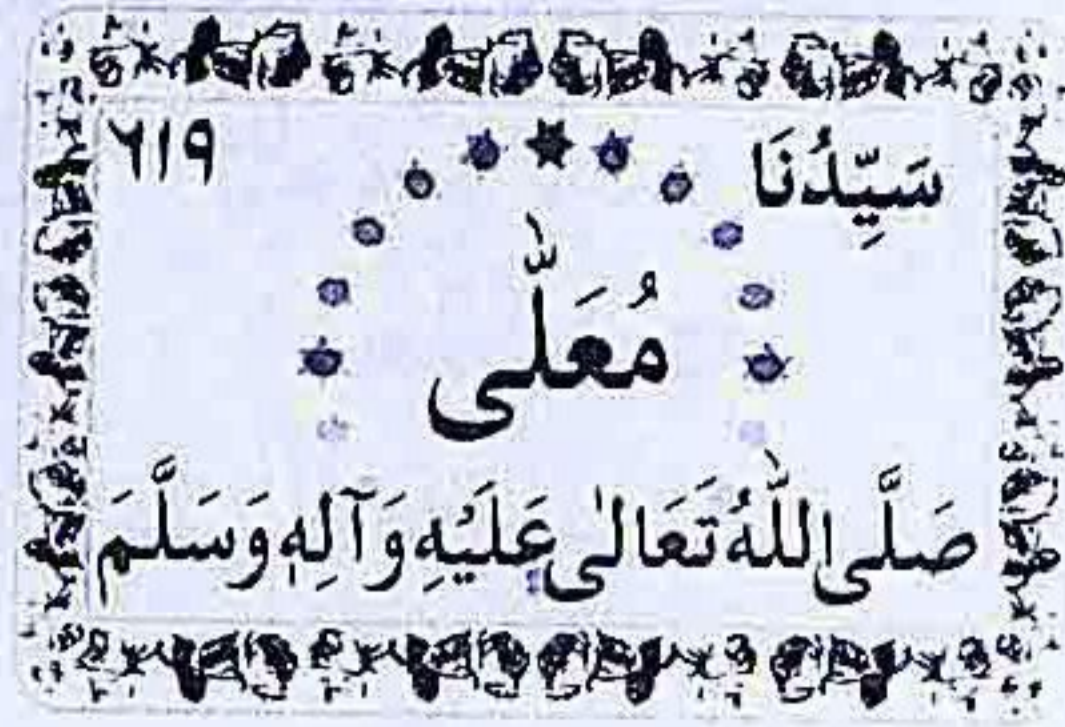 سَيِّدُنَا ٦١٩
مُعَلّٰى
صَلَّى اللّٰهُ تَعَالٰى عَلَيْهِ وَآلِهٖ وَسَلَّمَ